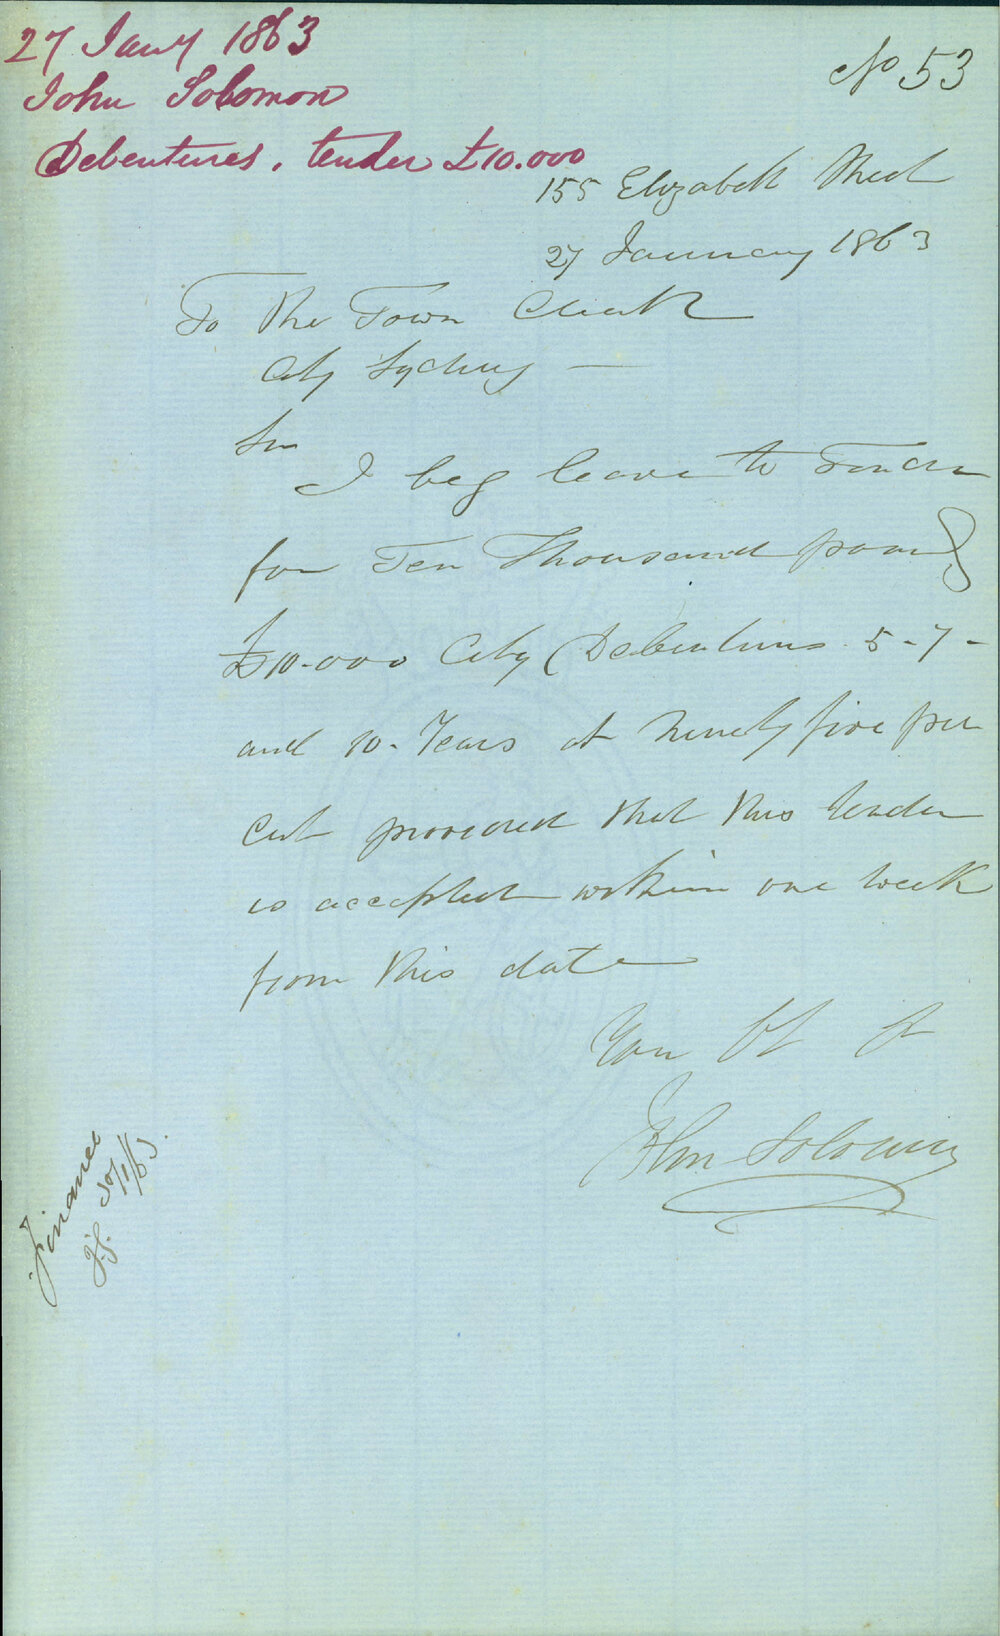 27 Jany 1863
John Solomon
Debentures, tender £10.000
No 53
155 Elizabeth Street
27 January 1863
To The Town Clerk
City Sydney —
Sir
I beg leave to Tender
for Ten Thousand pounds
£10-000 City Debentures 5-7-
and 10-Years at Ninety five per
cent provided that this tender
is accepted within one week
from this date
Your Ot St
John Solomon
Finance
30/1/63.